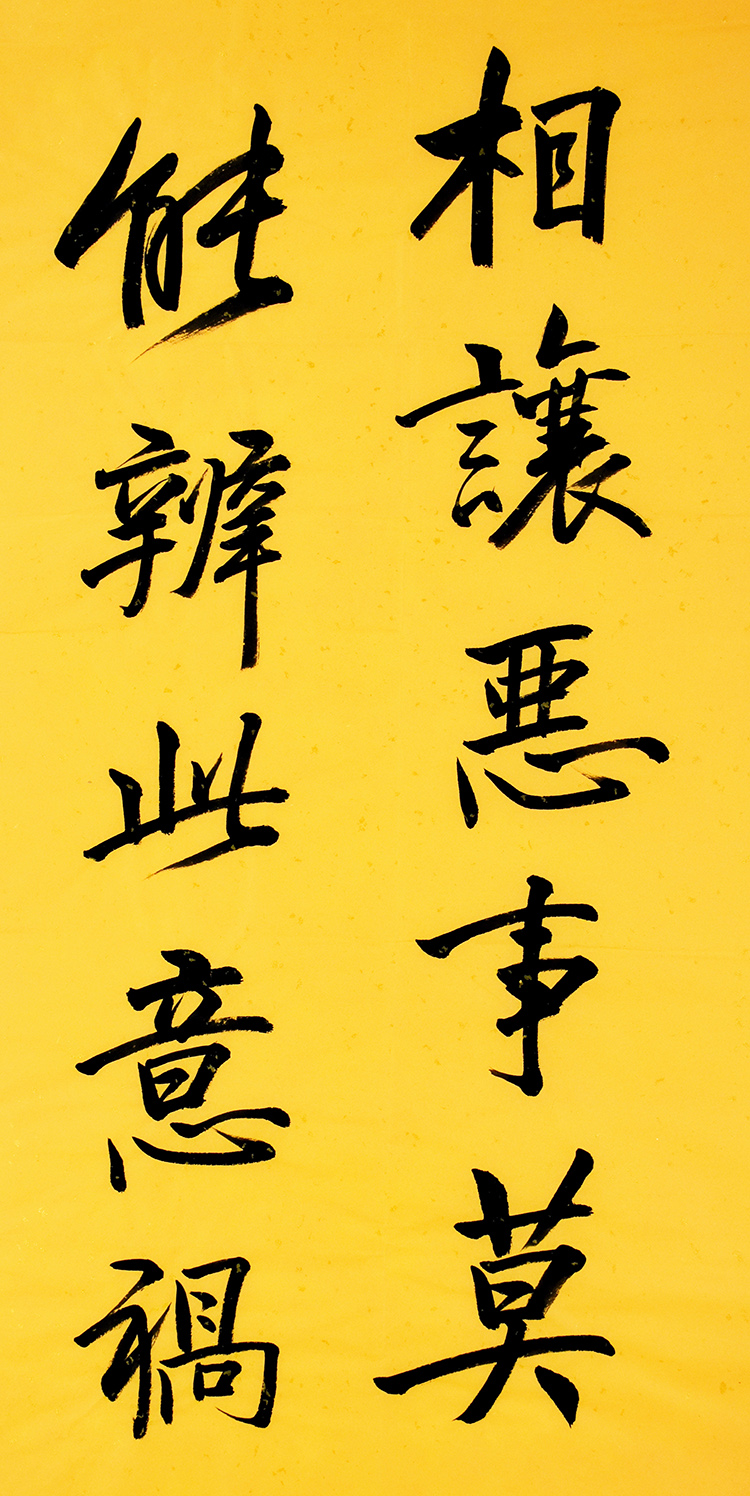 相讓惡事莫
能辨此意禍